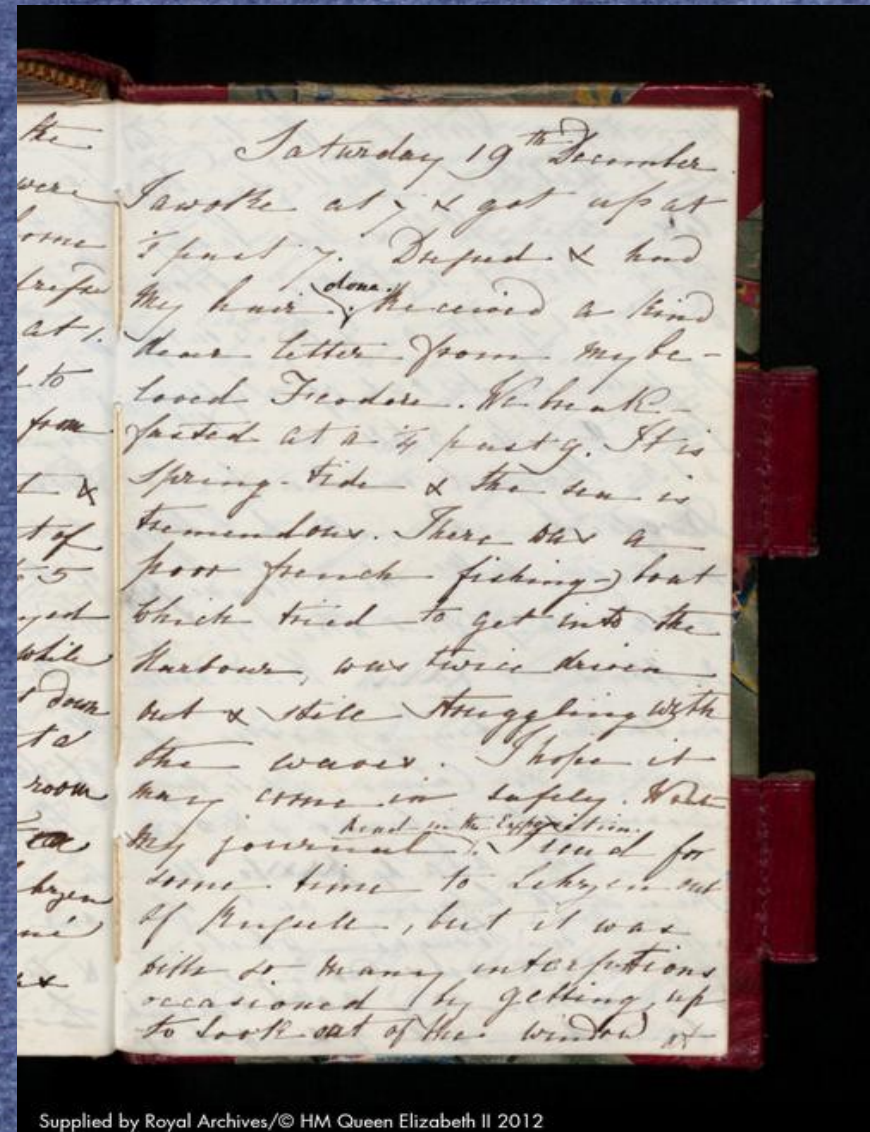 the
were
at 1.
to
from
&
t of
5
while
down
room
Saturday 19th December.
I awoke at 7 & got up at
½ past 7. Dressed & had
my hair done. Received a kind
dear letter from my be-
loved Feodore. We break-
fasted at a ¼ past 9. It is
spring-tide & the sea is
tremendous. There was a
poor french fishing-boat
which tried to get into the
Harbour, was twice driven
out & still struggling with
the waves. I hope it
may come in safely. Wrote
my journal. Read in the Exposition. I read for
some time to Lehzen out
of Russell, but it was
with so many interruptions
occasioned by getting up
to look out of the window at
Supplied by Royal Archives/© HM Queen Elizabeth II 2012